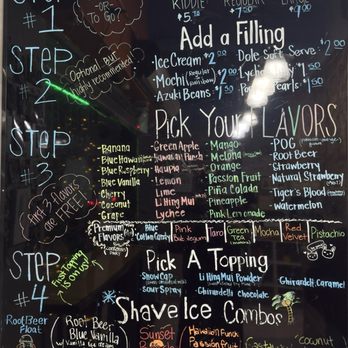 STEP #1
-OR-
TO Go?
KIDDIE REGULAR LARGE
$5.75
STEP #2
Optional BUT
highly recommended
Add a Filling
·Ice Cream $2.00
·Mochi (Regular
·Azuki Beans $1.50
·Dole Soft Serve $2.00
$1.50
Pearls $1.50
STEP #3
First 3 flavors
are FREE!
Pick Your FLAVORS
·Banana
·Blue Hawaiian
·Blue Raspberry
·Blue Vanilla
·Cherry
·Coconut
·Grape
·Green Apple
·Hawaiian Punch
·Haupia
·Lemon
·Lime
·Li Hing Mui
·Lychee
·Mango
·Melona
·Orange
·Passion Fruit
·Piña Colada
·Pineapple
·Pink Lemonade
·POG
·Root Beer
·Strawberry
·Natural Strawberry
·Tiger's Blood
·Watermelon
Premium
Flavors
Blue
Cotton Candy
Pink
Bubblegum
Taro
Green
Tea
Mocha
Red
Velvet
Pistachio
STEP #4
First Topping
is on us!
Pick A Topping
·Snow Cap
·Sour Spray
·Li Hing Mui Powder
·Ghirardelli chocolate
·Ghirardelli Caramel
Shave Ice Combos
Root Beer
Float
Root Beer
Blue Vanilla
w/ Vanilla Ice
Sunset
Hawaiian Punch
Passion Fruit
coconut